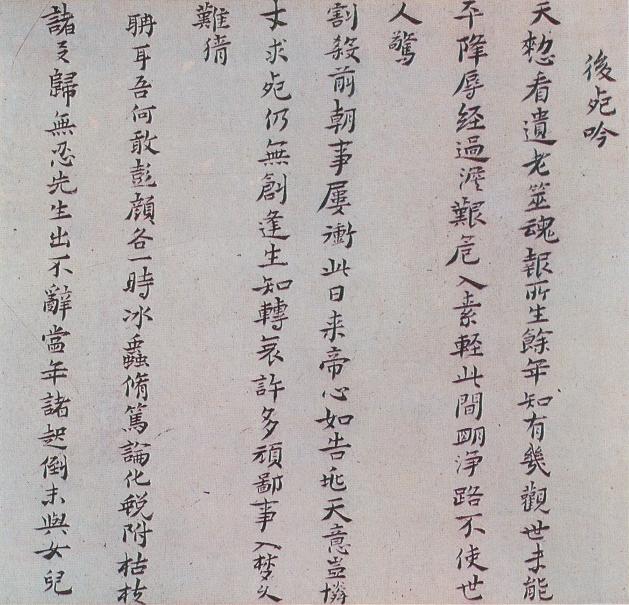 後死吟
天愁看遺老筮魂報所生餘年知有幾觀世未能
平降辱经過澀艱危入素輕此間明浄路不使世
人驚
割殺前朝事屢衝此日来帝心如告死天意豈憐
才求死仍無創逢生知轉哀許多頑鄙事入梦久
難猜
聃耳吾何敢彭顔各一時冰蟲脩篤論化蛻附枯枝
諸子歸無忍先生出不辭當年諸起倒未與女兒